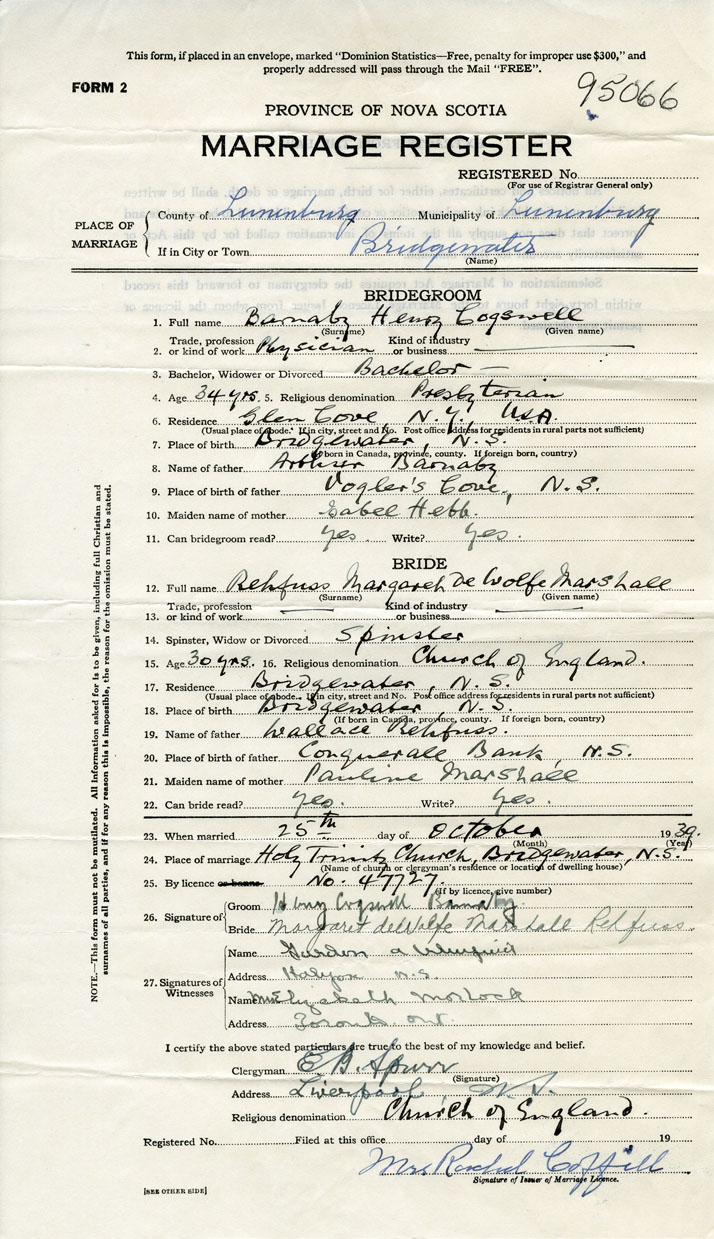 This form, if placed in an envelope, marked “Dominion Statistics—Free, penalty for improper use $300,” and
properly addressed will pass through the Mail “FREE”.
FORM 2
95066
PROVINCE OF NOVA SCOTIA
MARRIAGE REGISTER
REGISTERED No.
(For use of Registrar General only)
PLACE OF MARRIAGE
County of Lunenburg Municipality of Lunenburg
If in City or Town Bridgewater
(Name)
BRIDEGROOM
1. Full name Barnaby Henry Cogswell
(Surname) (Given name)
2. Trade, profession or kind of work Physician Kind of industry or business —
3. Bachelor, Widower or Divorced Bachelor —
4. Age 34 yrs. 5. Religious denomination Presbyterian
6. Residence Glen Cove, N.Y., USA
(Usual place of abode. If in city, street and No. Post office address for residents in rural parts not sufficient)
7. Place of birth Bridgewater, N.S.
(If born in Canada, province, county. If foreign born, country)
8. Name of father Arthur Barnaby
9. Place of birth of father Vogler's Cove, N.S.
10. Maiden name of mother Hebb.
11. Can bridegroom read? yes. Write? yes.
BRIDE
12. Full name Rehfuss Margaret De Wolfe Marshall
(Surname) (Given name)
13. Trade, profession or kind of work — Kind of industry or business —
14. Spinster, Widow or Divorced Spinster
15. Age 30 yrs. 16. Religious denomination Church of England.
17. Residence Bridgewater, N.S.
(Usual place of abode. If in city, street and No. Post office address for residents in rural parts not sufficient)
18. Place of birth Bridgewater, N.S.
(If born in Canada, province, county. If foreign born, country)
19. Name of father Wallace Rehfuss.
20. Place of birth of father Conquerall Bank, N.S.
21. Maiden name of mother Pauline Marshall
22. Can bride read? yes. Write? yes.
23. When married 25th day of October 1939.
(Month) (Year)
24. Place of marriage Holy Trinity Church, Bridgewater, N.S.
(Name of church or clergyman's residence or location of dwelling house)
25. By licence or banns No. 47727.
(If by licence, give number)
26. Signature of
Groom Henry Cogswell Barnaby
Bride Margaret deWolfe Marshall Rehfuss.
27. Signatures of Witnesses
Name Gordon a
Address Halifax N.S.
Name Mrs Elizabeth Morlock
Address Toronto Ont.
I certify the above stated particulars are true to the best of my knowledge and belief.
Clergyman E B. Spurr
(Signature)
Address Liverpool N.S.
Religious denomination Church of England.
Registered No. Filed at this office day of 19
Mrs Rachel Coffill
Signature of Issuer of Marriage Licence.
[SEE OTHER SIDE]
NOTE.—This form must not be mutilated. All Information asked for is to be given, including full Christian and
surnames of all parties, and if for any reason this is impossible, the reason for the omission must be stated.